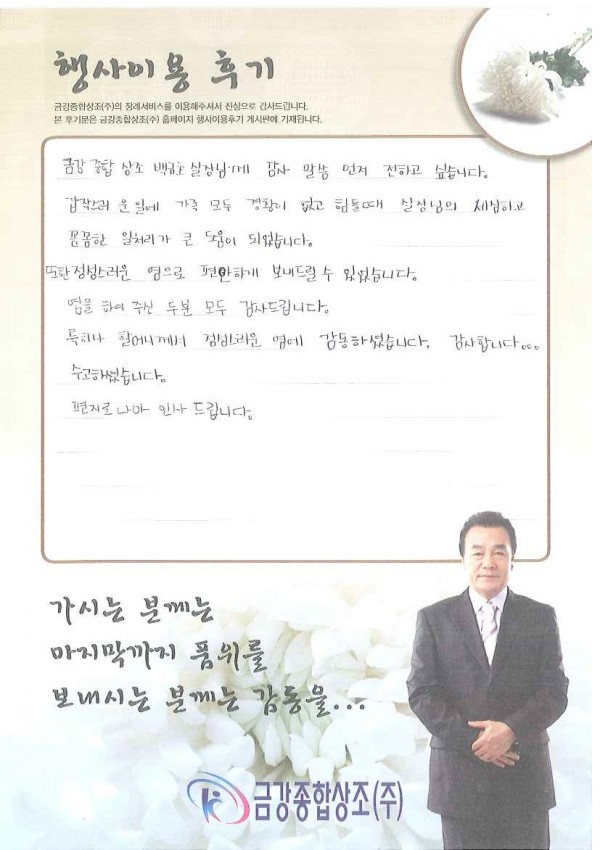 행사이용 후기
금강종합상조(주)의 장례서비스를 이용해주셔서 진심으로 감사드립니다.
본 후기문은 금강종합상조(주) 홈페이지 행사이용후기 게시판에 기재됩니다.
금강 종합 상조 실장님께 감사 말씀 먼저 전하고 싶습니다.
갑작스러운 일에 가족 모두 경황이 없고 힘들때 실장님의 세심하고
꼼꼼한 일처리가 큰 도움이 되었습니다.
또한 정성스러운 염으로 편안하게 보내드릴 수 있었습니다.
염을 하여 주신 두분 모두 감사드립니다.
특히나 할머니께서 정성스러운 염에 감동하셨습니다. 감사합니다...
수고하셨습니다.
편지로나마 인사 드립니다.
가시는 분께는
마지막까지 품위를
보내시는 분께는 감동을...
금강종합상조(주)